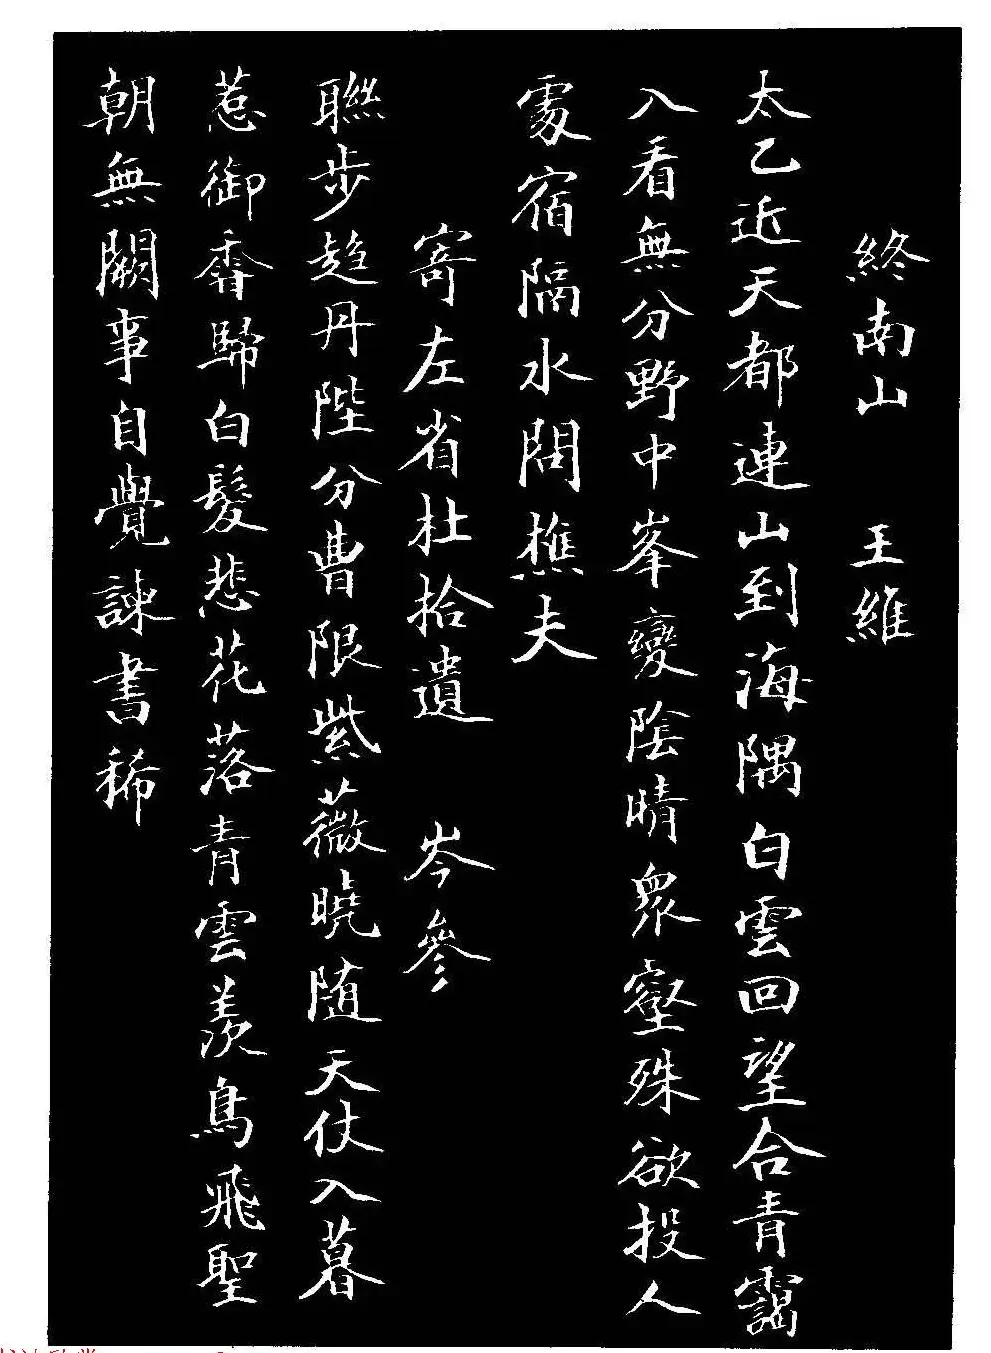 終南山 王維
太乙近天都連山到海隅白雲回望合青靄
入看無分野中峯變陰晴衆壑殊欲投人
處宿隔水問樵夫
寄左省杜拾遺 岑參
聯步趨丹陛分曹限紫薇曉随天仗入暮
惹御香歸白髮悲花落青雲羡鳥飛聖
朝無闕事自覺諫書稀